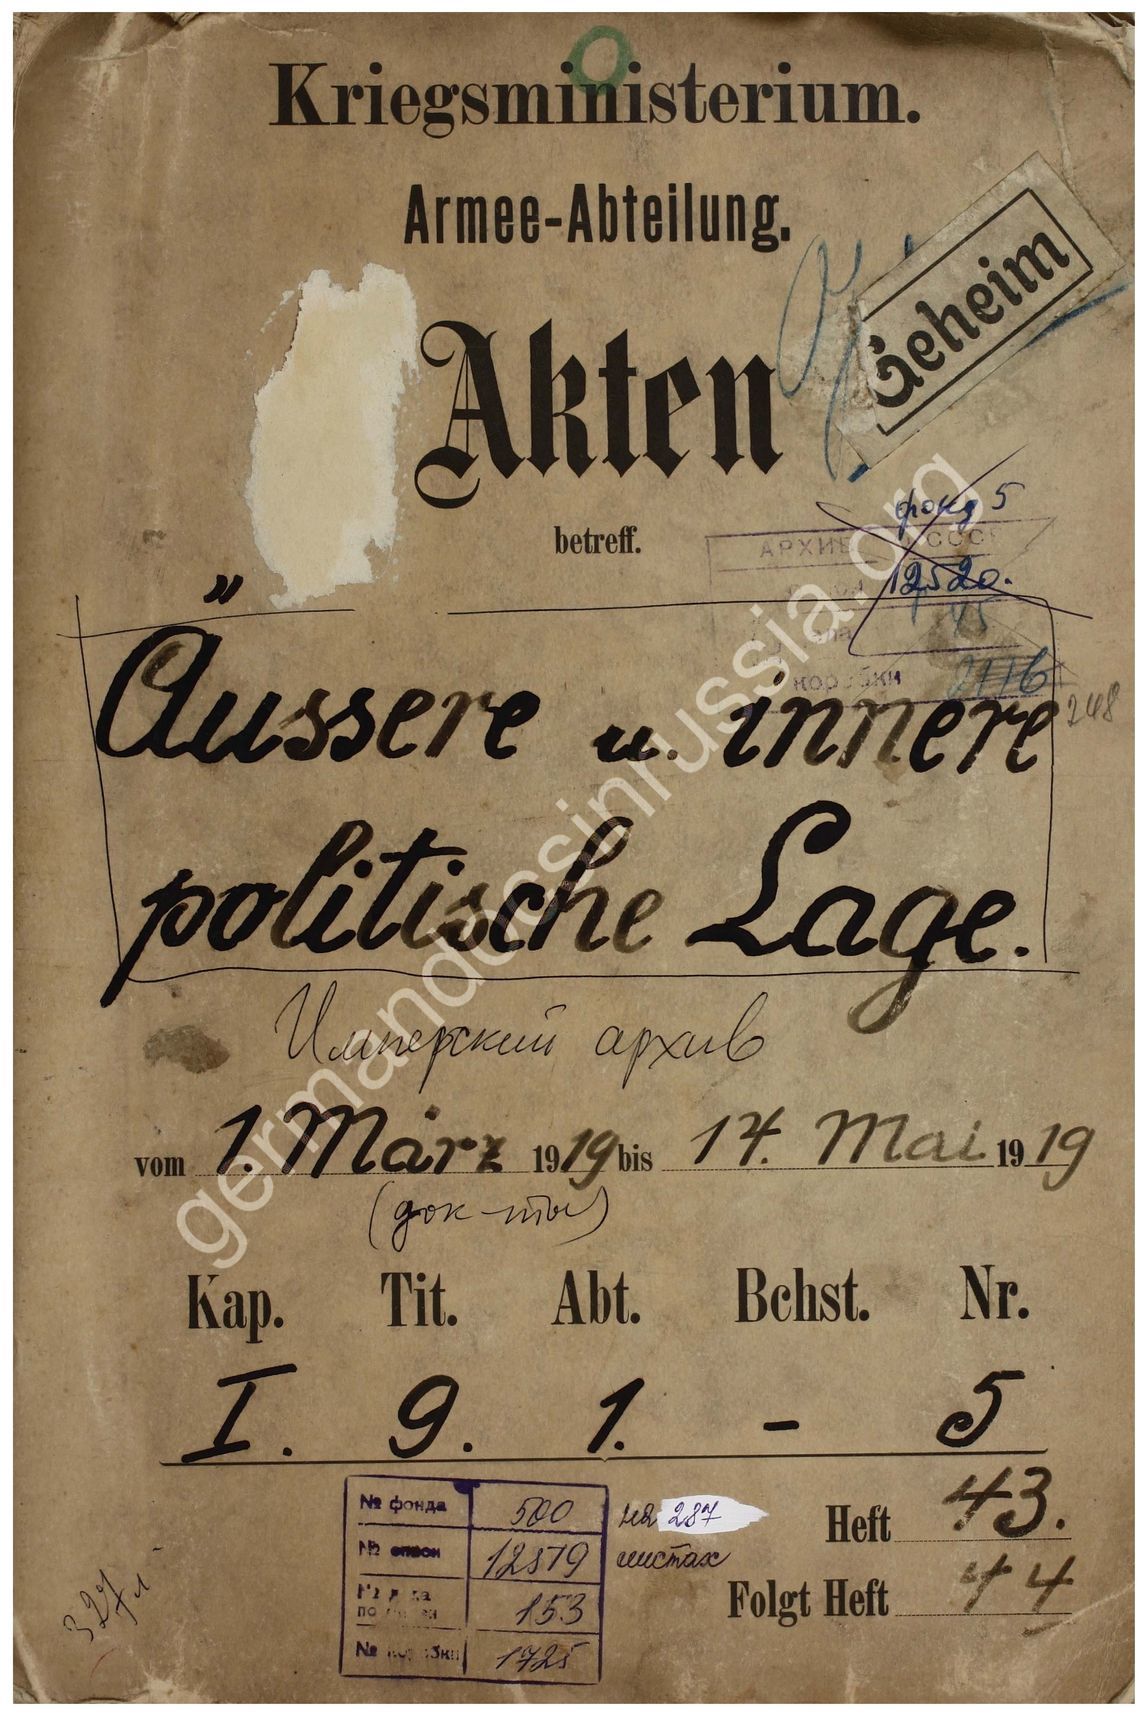 Kriegsministerium.
Armee-Abteilung.
Geheim
Akten
betreff.
фонд 5
АРХИВ СССР
12520.
45
коробки 2116
248
"Äussere u. innere
politische Lage.
Имперский архив
vom 1. März 1919 bis 14. Mai 1919
(док-ты)
Kap. Tit. Abt. Bchst. Nr.
I. 9. 1. - 5
№ фонда 500 на 287
№ описи 12519 листах
153
№ коробки 1725
Heft 43.
Folgt Heft 44
327 л
germandocsinrussia.org